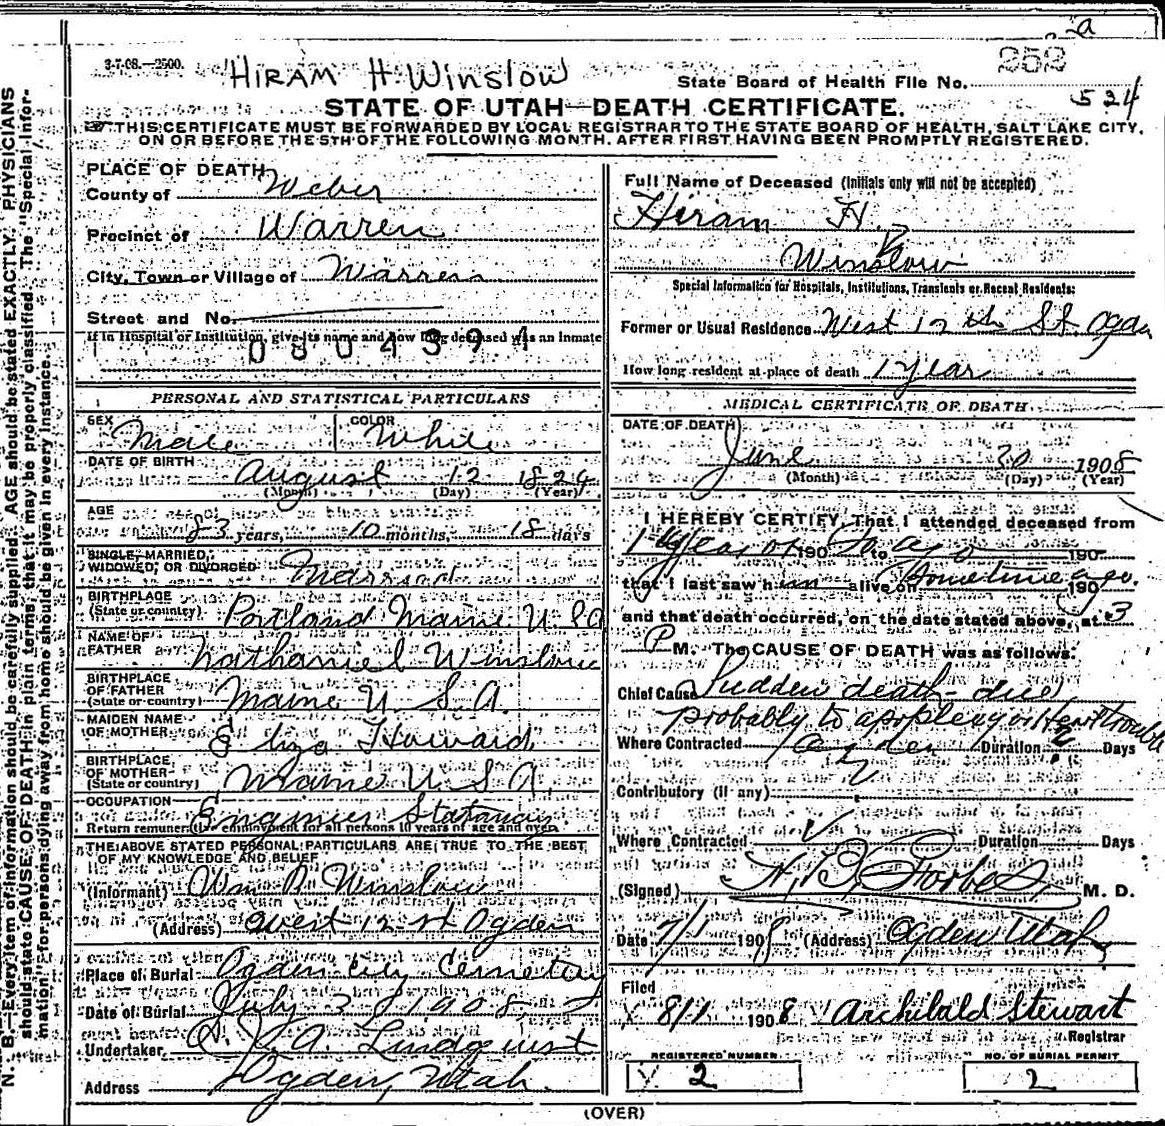 a
3-7-08.—2500.
HIRAM H. WINSLOW
252
State Board of Health File No.
524
STATE OF UTAH—DEATH CERTIFICATE.
THIS CERTIFICATE MUST BE FORWARDED BY LOCAL REGISTRAR TO THE STATE BOARD OF HEALTH, SALT LAKE CITY,
ON OR BEFORE THE 5TH OF THE FOLLOWING MONTH. AFTER FIRST HAVING BEEN PROMPTLY REGISTERED.
N. B.—Every item of information should be carefully supplied. AGE should be stated EXACTLY. PHYSICIANS
should state CAUSE OF DEATH in plain terms, that it may be properly classified. The "Special Infor-
mation" for persons dying away from home should be given in every instance.
PLACE OF DEATH
County of Weber
Precinct of Warren
City, Town or Village of Warren
Street and No.
If in Hospital or Institution, give its name and how long deceased was an inmate
PERSONAL AND STATISTICAL PARTICULARS
SEX Male
COLOR White
DATE OF BIRTH
August 12 1824
(Month) (Day) (Year)
AGE
83 years, 10 months, 18 days
SINGLE, MARRIED,
WIDOWED, OR DIVORCED Married
BIRTHPLACE
(State or country) Portland Maine U.S.A
NAME OF
FATHER Nathaniel Winslow
BIRTHPLACE
OF FATHER
(State or country) Maine U. S. A.
MAIDEN NAME
OF MOTHER Eliza Howard
BIRTHPLACE
OF MOTHER
(State or country) Maine U S A.
OCCUPATION Engineer Stationary
Return remunerative employment for all persons 10 years of age and over
THE ABOVE STATED PERSONAL PARTICULARS ARE TRUE TO THE BEST
OF MY KNOWLEDGE AND BELIEF
(Informant) Wm Winslow
(Address) West 12 St Ogden
Place of Burial Ogden City Cemetery
Date of Burial July 3 1908
Undertaker A. Lindquist
Address Ogden, Utah.
Full Name of Deceased (Initials only will not be accepted)
Hiram H.
Winslow
Special Information for Hospitals, Institutions, Transients or Recent Residents:
Former or Usual Residence West 12th St. Ogden
How long resident at place of death 1 year
MEDICAL CERTIFICATE OF DEATH
DATE OF DEATH
June 30 1908
(Month) (Day) (Year)
I HEREBY CERTIFY, That I attended deceased from
1 year or 190 to ago 190
that I last saw him alive on Sometime ago. 190
and that death occurred, on the date stated above, at 3
P M. The CAUSE OF DEATH was as follows:
Chief Cause Sudden death - due
probably to apoplexy or Heart trouble
Where Contracted Ogden Duration Days
Contributory (if any)
Where Contracted Duration Days
(Signed) H. B. Forbes M. D.
Date 7/1 1908 (Address) Ogden Utah
Filed
8/1 1908 Archibald Stewart
Registrar
REGISTERED NUMBER
2
NO. OF BURIAL PERMIT
2
(OVER)